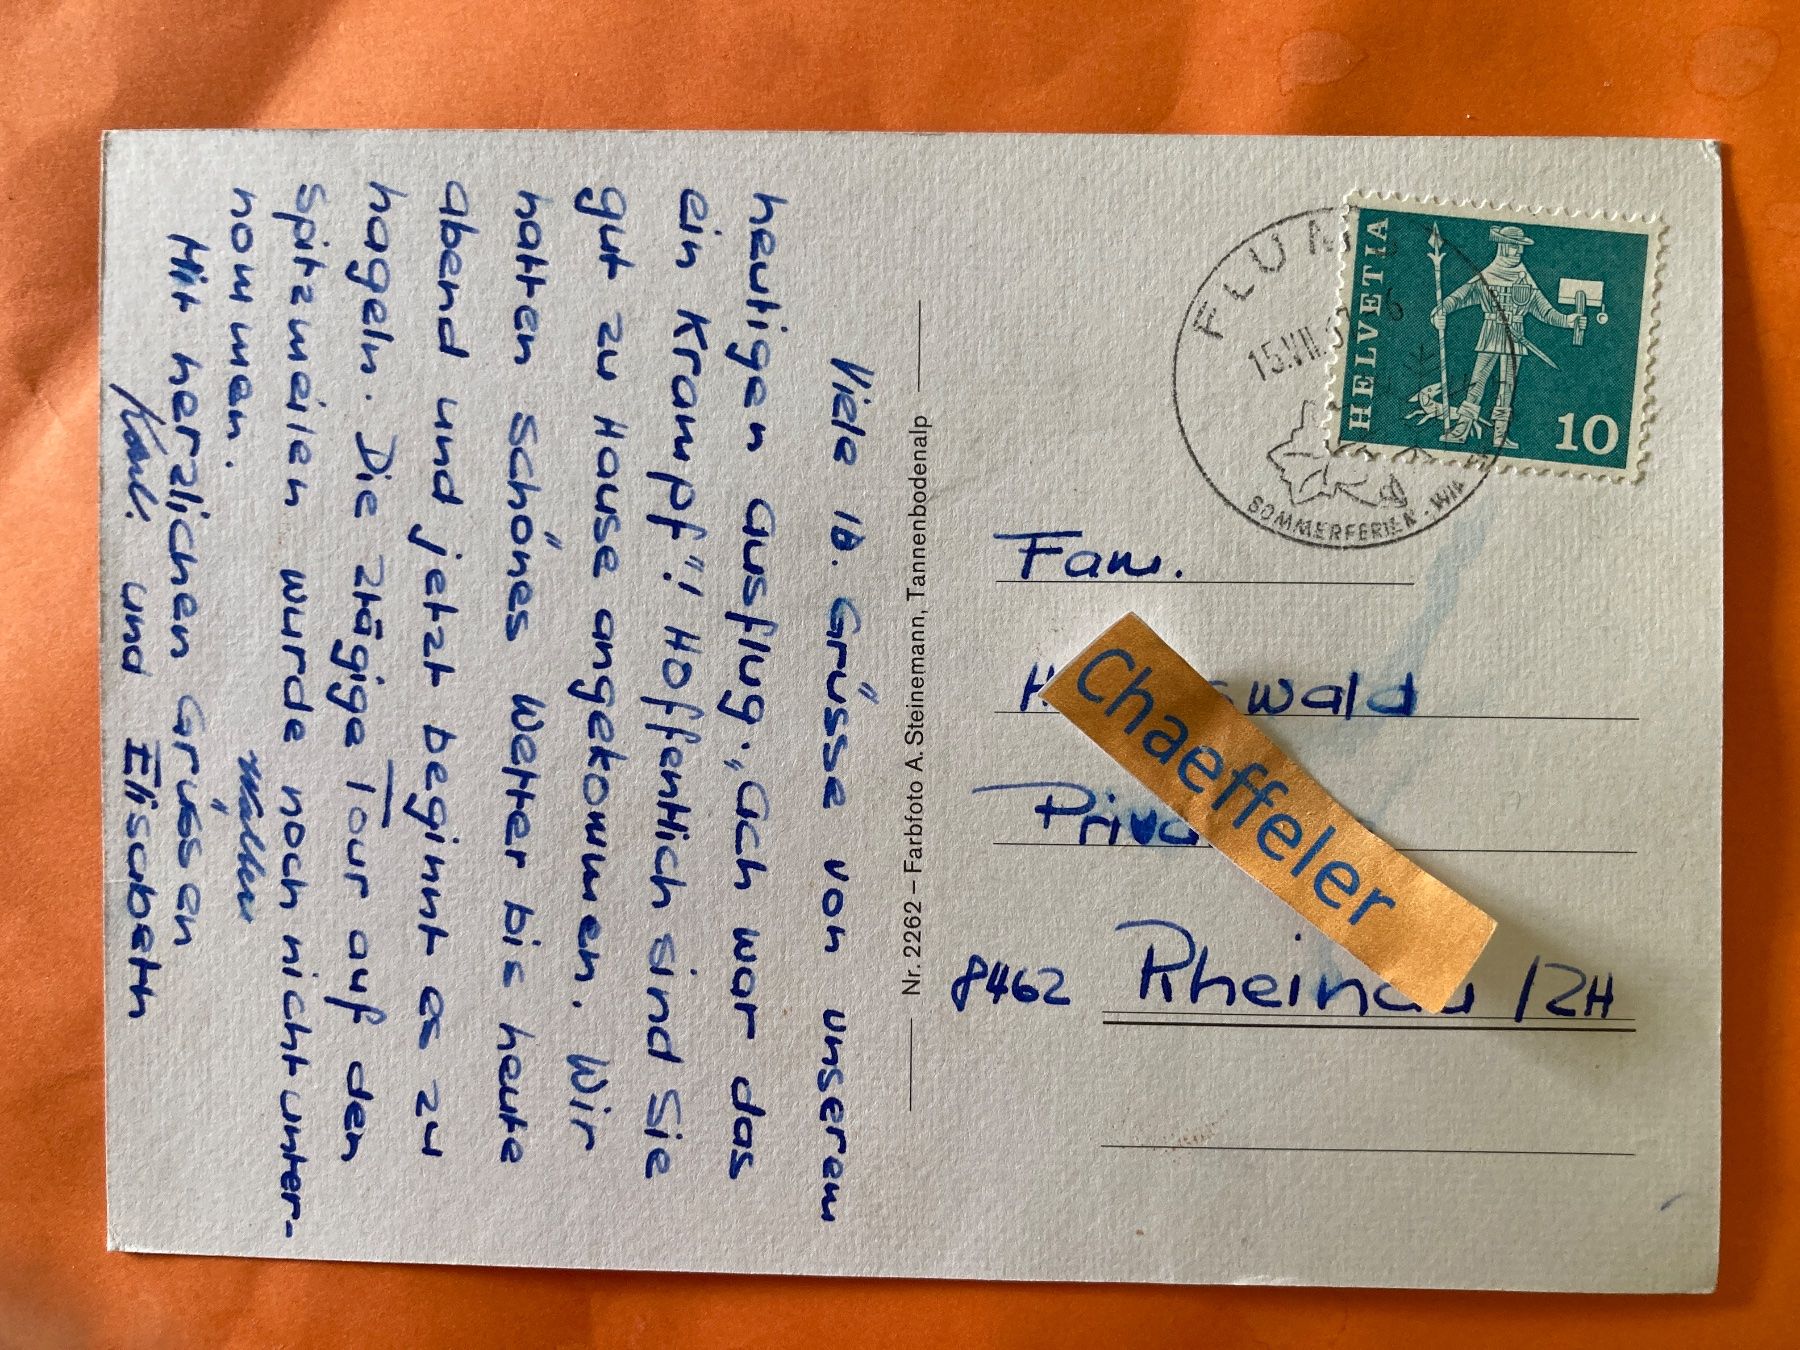 Viele lb. Grüsse von unserem
heutigen Ausflug. „Ach war das
ein Krampf"! Hoffentlich sind Sie
gut zu Hause angekommen. Wir
hatten schönes Wetter bis heute
abend und jetzt beginnt es zu
hageln. Die 2tägige Tour auf den
Spitzmeilen wurde noch nicht unter-
nommen.
Mit herzlichen Grüssen
und Elisabeth
Nr. 2262 – Farbfoto A. Steinemann, Tannenbodenalp
HELVETIA
10
FLUMS
15.VII.
SOMMERFERIEN - WIN
Fam.
wald
Chaeffeler
8462 Rheinau / ZH